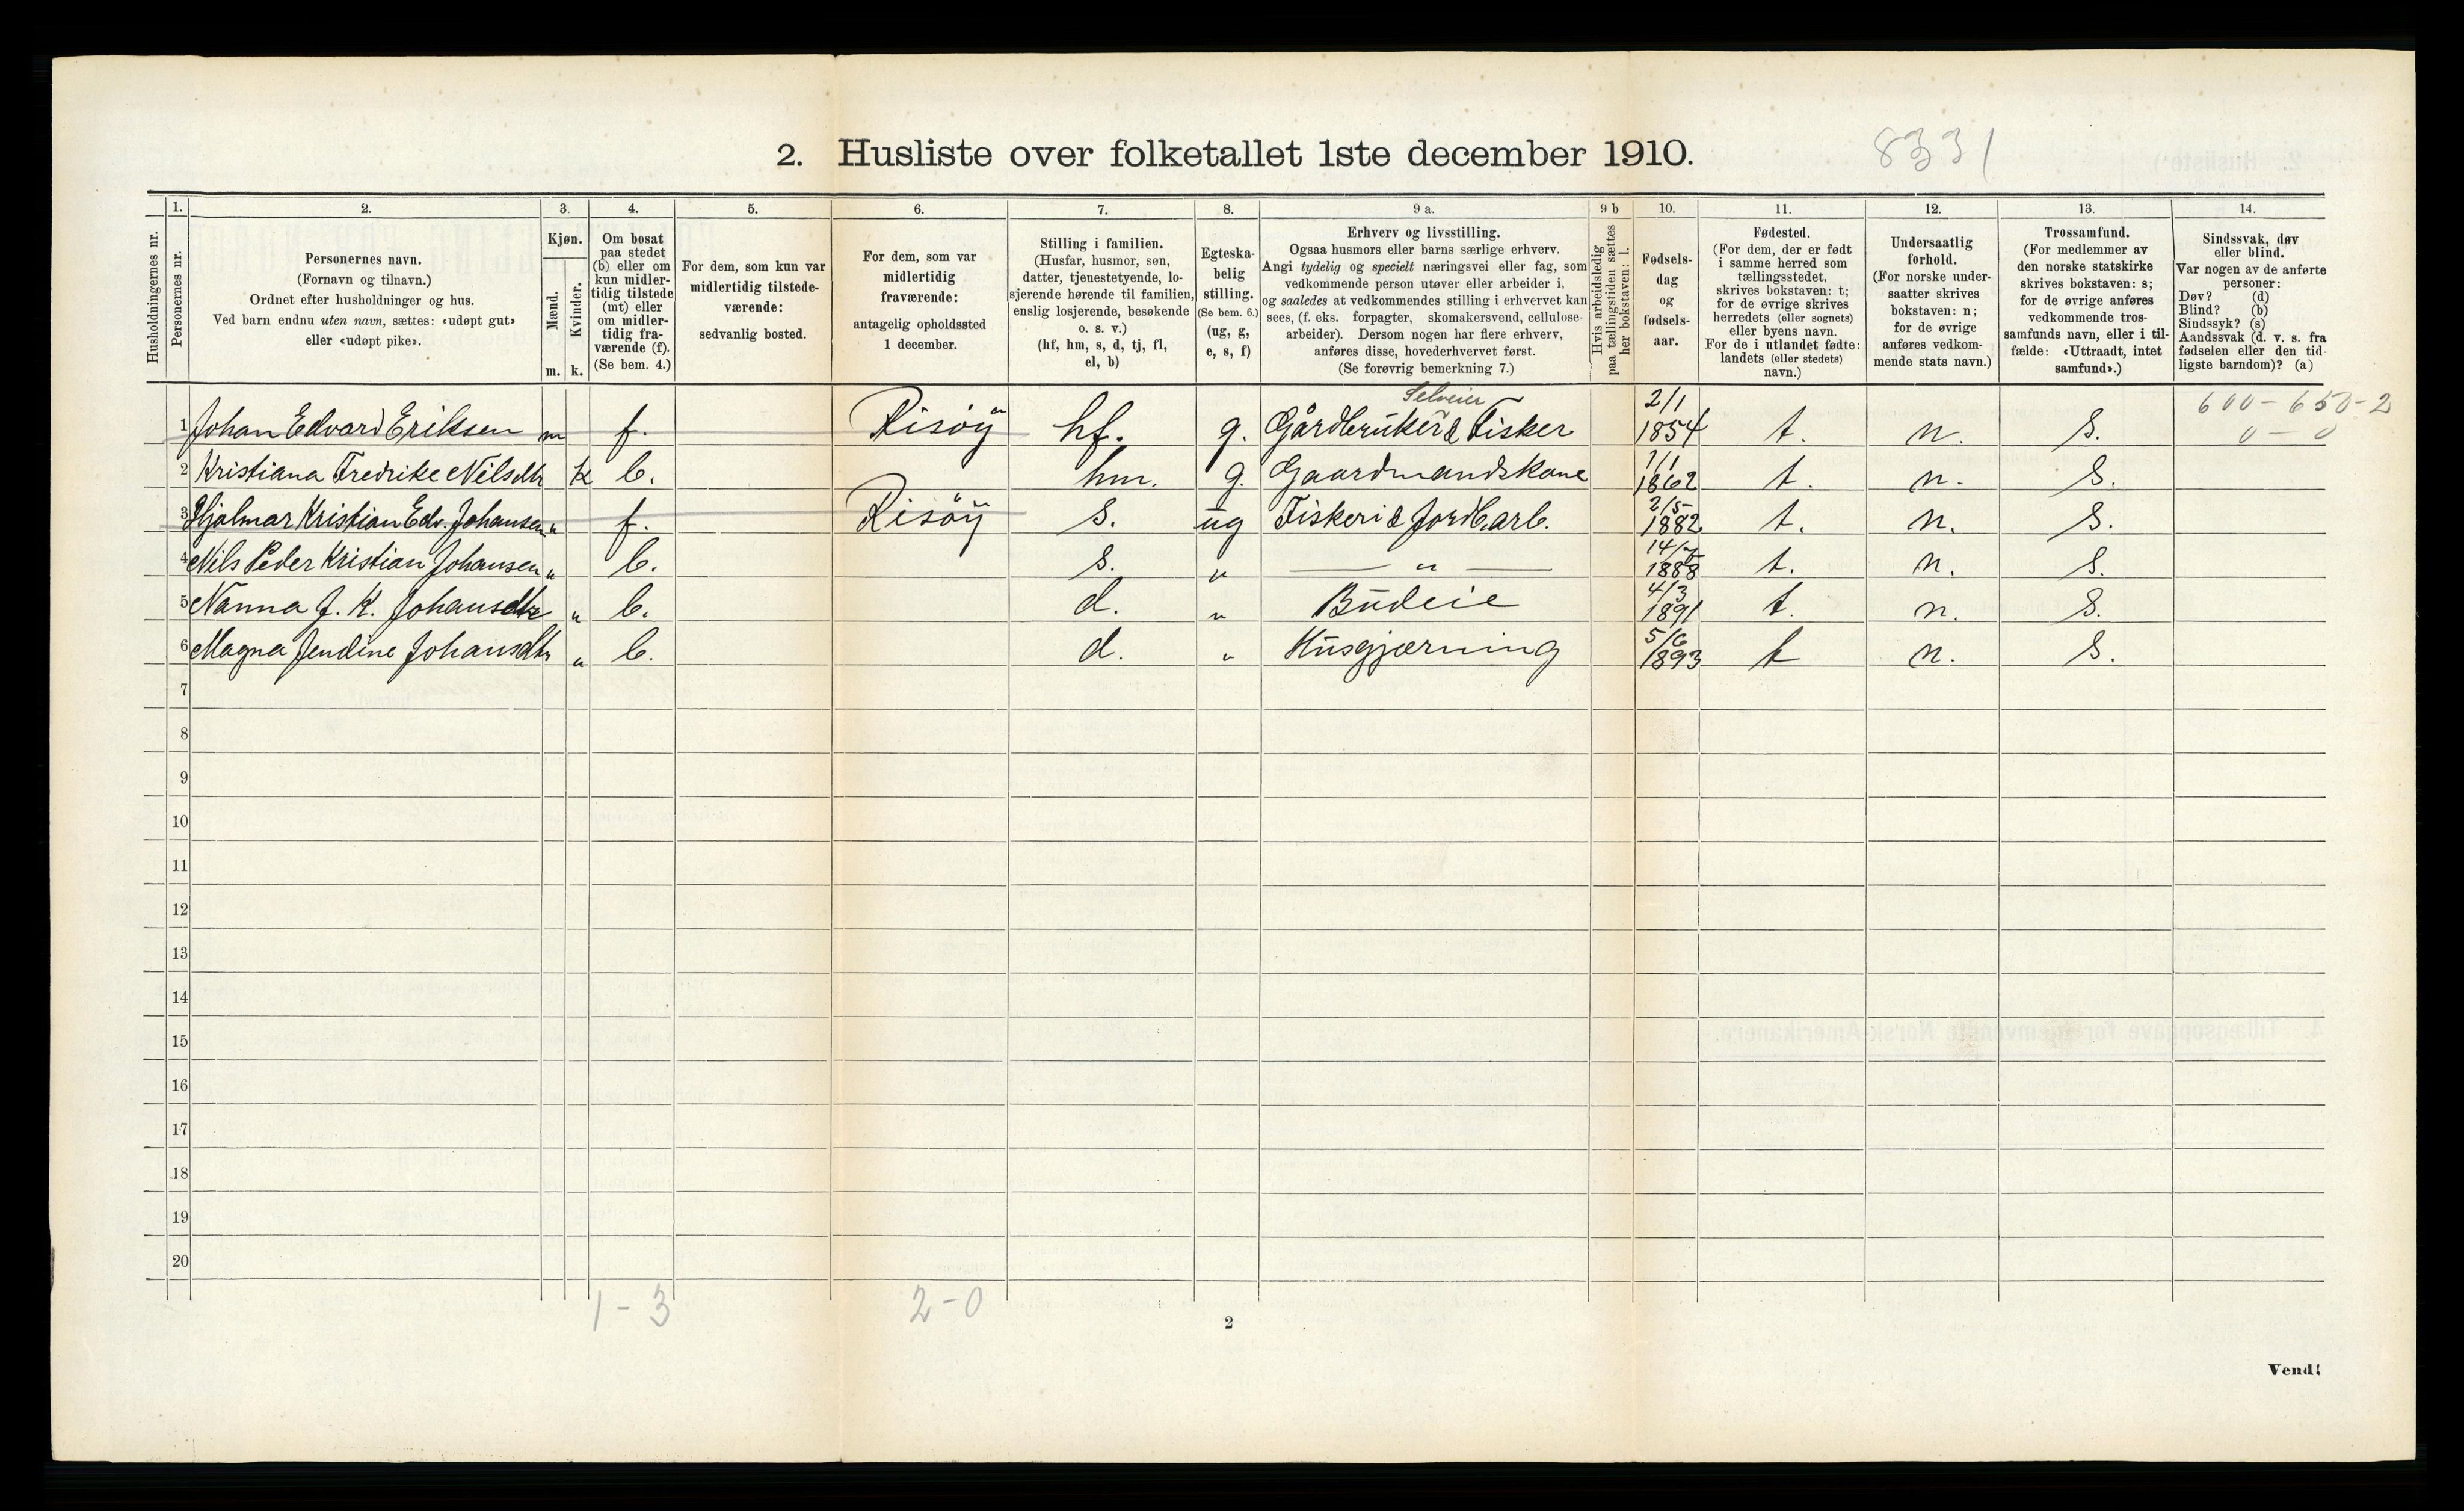 2. Husliste over folketallet 1ste december 1910.
8331
Husholdningernes nr.
1.
Personernes nr.
2.
Personernes navn.
(Fornavn og tilnavn.)
Ordnet efter husholdninger og hus.
Ved barn endnu uten navn, sættes: «udøpt gut»
eller «udøpt pike».
3.
Kjøn.
Mænd.
Kvinder.
m. k.
4.
Om bosat
paa stedet
(b) eller om
kun midler-
tidig tilstede
(mt) eller
om midler-
tidig fra-
værende (f).
(Se bem. 4.)
5.
For dem, som kun var
midlertidig tilstede-
værende:
sedvanlig bosted.
6.
For dem, som var
midlertidig
fraværende:
antagelig opholdssted
1 december.
7.
Stilling i familien.
(Husfar, husmor, søn,
datter, tjenestetyende, lo-
sjerende hørende til familien,
enslig losjerende, besøkende
o. s. v.)
(hf, hm, s, d, tj, fl,
el, b)
8.
Egteska-
belig
stilling.
(Se bem. 6.)
(ug, g,
e, s, f)
9 a.
Erhverv og livsstilling.
Ogsaa husmors eller barns særlige erhverv.
Angi tydelig og specielt næringsvei eller fag, som
vedkommende person utøver eller arbeider i,
og saaledes at vedkommendes stilling i erhvervet kan
sees, (f. eks. forpagter, skomakersvend, cellulose-
arbeider). Dersom nogen har flere erhverv,
anføres disse, hovederhvervet først.
(Se forøvrig bemerkning 7.)
9 b
Hvis arbeidsledig
paa tællingstiden sættes
her bokstaven: l.
10.
Fødsels-
dag
og
fødsels-
aar.
11.
Fødested.
(For dem, der er født
i samme herred som
tællingsstedet,
skrives bokstaven: t;
for de øvrige skrives
herredets (eller sognets)
eller byens navn.
For de i utlandet fødte:
landets (eller stedets)
navn.)
12.
Undersaatlig
forhold.
(For norske under-
saatter skrives
bokstaven: n;
for de øvrige
anføres vedkom-
mende stats navn.)
13.
Trossamfund.
(For medlemmer av
den norske statskirke
skrives bokstaven: s;
for de øvrige anføres
vedkommende tros-
samfunds navn, eller i til-
fælde: «Uttraadt, intet
samfund».)
14.
Sindssvak, døv
eller blind.
Var nogen av de anførte
personer:
Døv? (d)
Blind? (b)
Sindssyk? (s)
Aandssvak (d. v. s. fra
fødselen eller den tid-
ligste barndom)? (a)
Selveier 2/1 600-650-2
1 Johan Edvard Eriksen m f. Risöy hf. g. Gårdbruker & Fisker 1854 t. n. S. 0-0
1/1
2 Kristiana Fredrike Nilsdtr k b. hm. g. Gaardmandskone 1862 t. n. S.
2/5
3 Hjalmar Kristian Edv. Johansen " f. Risöy s. ug Fiskeri & Jordb.arb. 1882 t. n. S.
4 Nils Peder Kristian Johansen " b. s. " — " — 1888 t. n. S.
4/3
5 Nanna J. K. Johansdtr " b. d. " Budeie 1891 t. n. S.
5/6
6 Magna Jendine Johansdtr " b. d. " Husgjærning 1893 t n. S.
7
8
9
10
11
12
13
14
15
16
17
18
19
20
1-3 2-0
2
Vend!